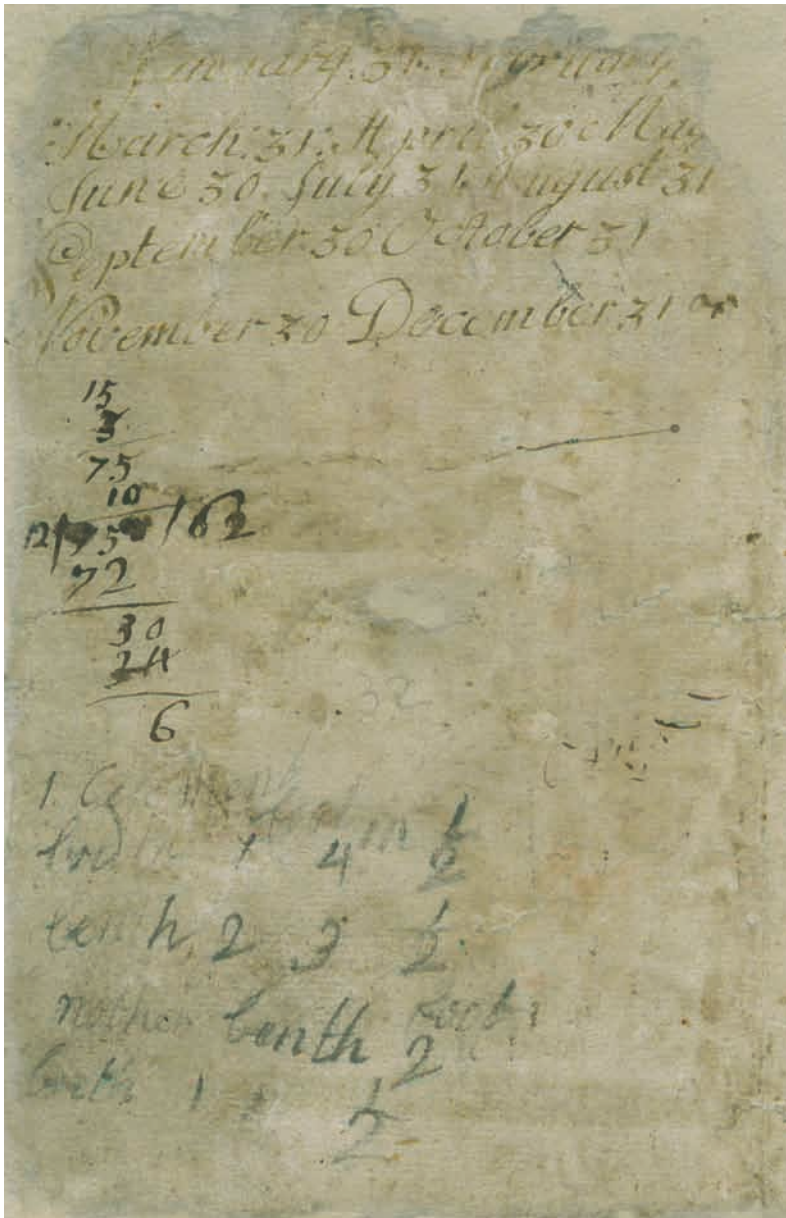 January. 31. February
March. 31. Aprul. 30 May
June 30. July. 31. August 31
September. 30 October 31
November 30 December. 31
15
5
75
10
12 / 75 / 62
72
30
24
6
32
1
1 4 in 1/2
lenth 2 3 1/2
nother lenth foot
2
1 1/2